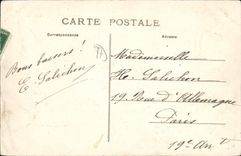 CARTE POSTALE
Correspondance
Adresse
Bons baisers !
E. Salichon
Mademoiselle
H. Salichon
19 Rue d'Allemagne
Paris
19e Arr